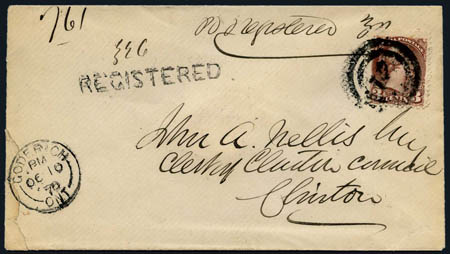 761
Registered
326
REGISTERED
GODERICH
PM
10
79
ONT
John A. Nellis
Clerk of Clinton Council
Clinton